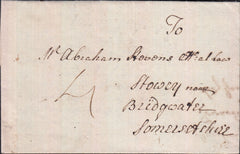 To
Mr Abraham Stevens att
Stowey near
Bridgwater
Somersetshire
4